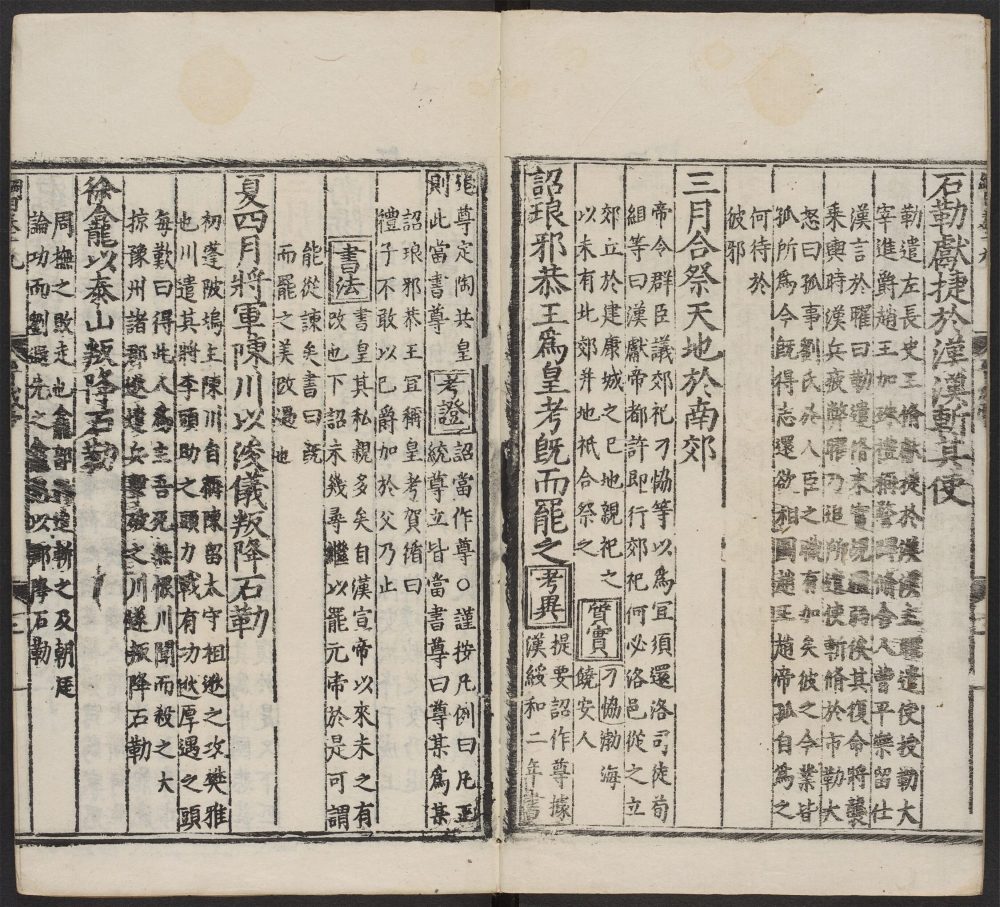 石勒獻捷於漢漢斬其使
勒遣左長史王脩獻捷於漢漢主曜遣使授勒大
宰進爵趙王加殊禮稱警蹕脩舍人曹平樂留仕
漢言於曜曰勒遣脩來實覘强弱俟其復命將襲
乘輿時漢兵疲弊曜乃追所遣使斬脩於市勒大
怒曰孤事劉氏於人臣之職有加矣彼之今業皆
孤所爲今旣得志還欲相圖趙王趙帝孤自爲之
何待於
彼邪
三月合祭天地於南郊
帝令群臣議郊祀刁協等以爲宜須還洛司徒荀
組等曰漢獻帝都許即行郊祀何必洛邑從之立
郊立於建康城之巳地親祀之 質實 刁協渤海
以未有北郊并地祇合祭之 饒安人
詔琅邪恭王爲皇考旣而罷之 考異 提要詔作尊據
漢綏和二年書
尊定陶共皇 考證 詔當作尊○謹按凡例曰凡正
則此當書尊 統尊立皆當書尊曰尊某爲某
詔琅邪恭王宜稱皇考賀循曰
禮子不敢以己爵加於父乃止
書法 書皇其私親多矣自漢宣帝以來未之有
改也下詔未幾尋繼以罷元帝於是可謂
能從諫矣書曰旣
而罷之美改過也
夏四月將軍陳川以浚儀叛降石勒
初蓬陂塢主陳川自稱陳留太守祖逖之攻樊雅
也川遣其將李頭助之頭力戰有功逖厚遇之頭
每歎曰得此人爲主吾死無恨川聞而殺之大
掠豫州諸郡逖遣兵擊破之川遂叛降石勒
徐龕以泰山叛降石勒
周撫之敗走也龕部將追斬之及朝廷
論功而劉遐先之龕以郡降石勒